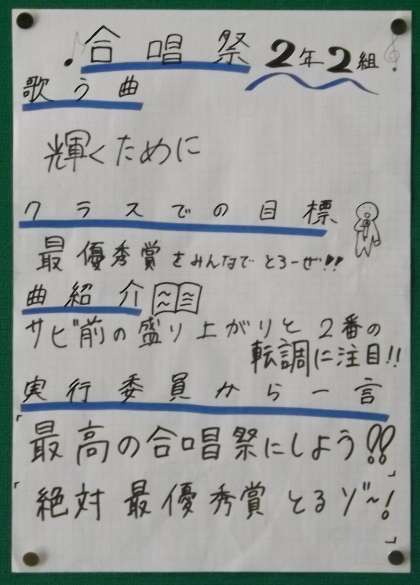 合唱祭 2年2組
歌う曲
輝くために
クラスでの目標
最優秀賞をみんなでとろーぜ!!
曲紹介
サビ前の盛り上がりと2番の
転調に注目!!
実行委員から一言
「最高の合唱祭にしよう!!」
「絶対最優秀賞とるゾ〜!」